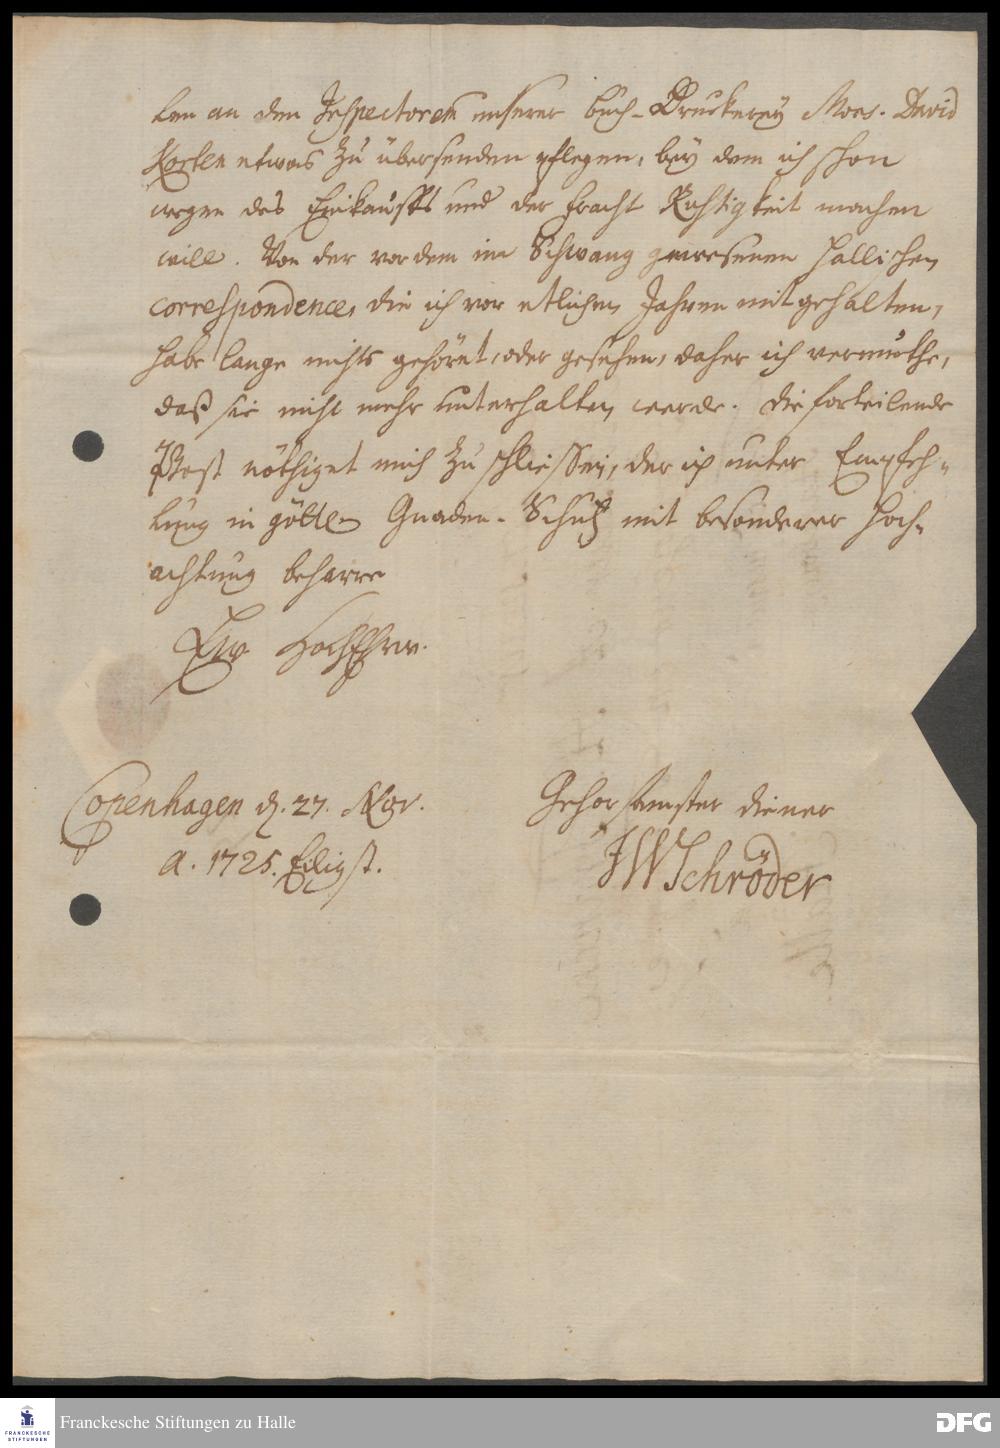 len an den Inspectorem unserer Buch-Druckerey Mons. David
Korten etwas zu übersenden pflegen, bey dem ich schon
wegen des Einkauffs und der Fracht Richtigkeit machen
will. Von der vordem im Schwang gewesenen Hallischen
correspondence, die ich vor etlichen Jahren mit gehalten,
habe lange nichts gehöret, oder gesehen, daher ich vermuthe,
daß sie nicht mehr unterhalten werde. Die forteilende
Post nöthiget mich zu schliessen, der ich unter Empfeh-
lung in göttl. Gnaden-Schutz mit besonderer Hoch-
achtung beharre
Ew HochEhrw.
Copenhagen d. 27. Nov.
A. 1725. Eiligst.
Gehorsamster diener
JWSchröder
Franckesche Stiftungen zu Halle
FRANCKESCHE
STIFTUNGEN
DFG